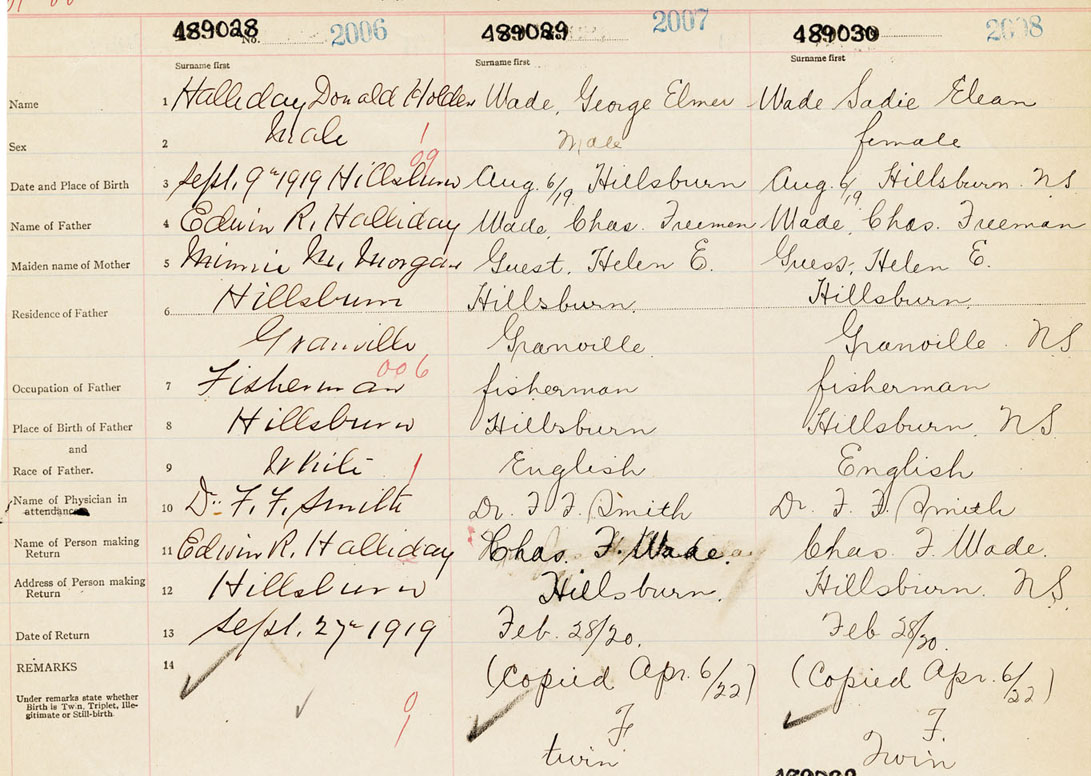 489028 No. 2006 489029 2007 489030 2008
Surname first Surname first Surname first
Name 1 Halliday, Donald Holden Wade, George Elmer Wade Sadie Elean
Sex 2 Male 1 Male female
99
Date and Place of Birth 3 Sept. 9th 1919 Hillsburn Aug. 6/19 Hillsburn Aug. 6/19 Hillsburn. NS
Name of Father 4 Edwin R. Halliday Wade, Chas. Freemen Wade, Chas. Freeman
Maiden name of Mother 5 Minnie M. Morgan Guest, Helen E. Guess, Helen E.
Residence of Father 6 Hillsburn Hillsburn. Hillsburn.
Granville Granville. Granville. NS
006
Occupation of Father 7 Fisherman fisherman fisherman
Place of Birth of Father 8 Hillsburn Hillsburn Hillsburn, NS
and
Race of Father. 9 White 1 English English
Name of Physician in attendance 10 Dr. F. F. Smith Dr. F F Smith Dr. F. F. Smith
Name of Person making Return 11 Edwin R. Halliday Chas. F. Wade. Chas. F. Wade.
Address of Person making Return 12 Hillsburn Hillsburn. Hillsburn. NS.
Date of Return 13 Sept. 27th 1919 Feb. 28/20. Feb 28/20.
REMARKS 14 (Copied Apr. 6/22) (Copied Apr. 6/22)
Under remarks state whether
Birth is Twin, Triplet, Ille-
gitimate or Still-birth.
F F.
twin Twin